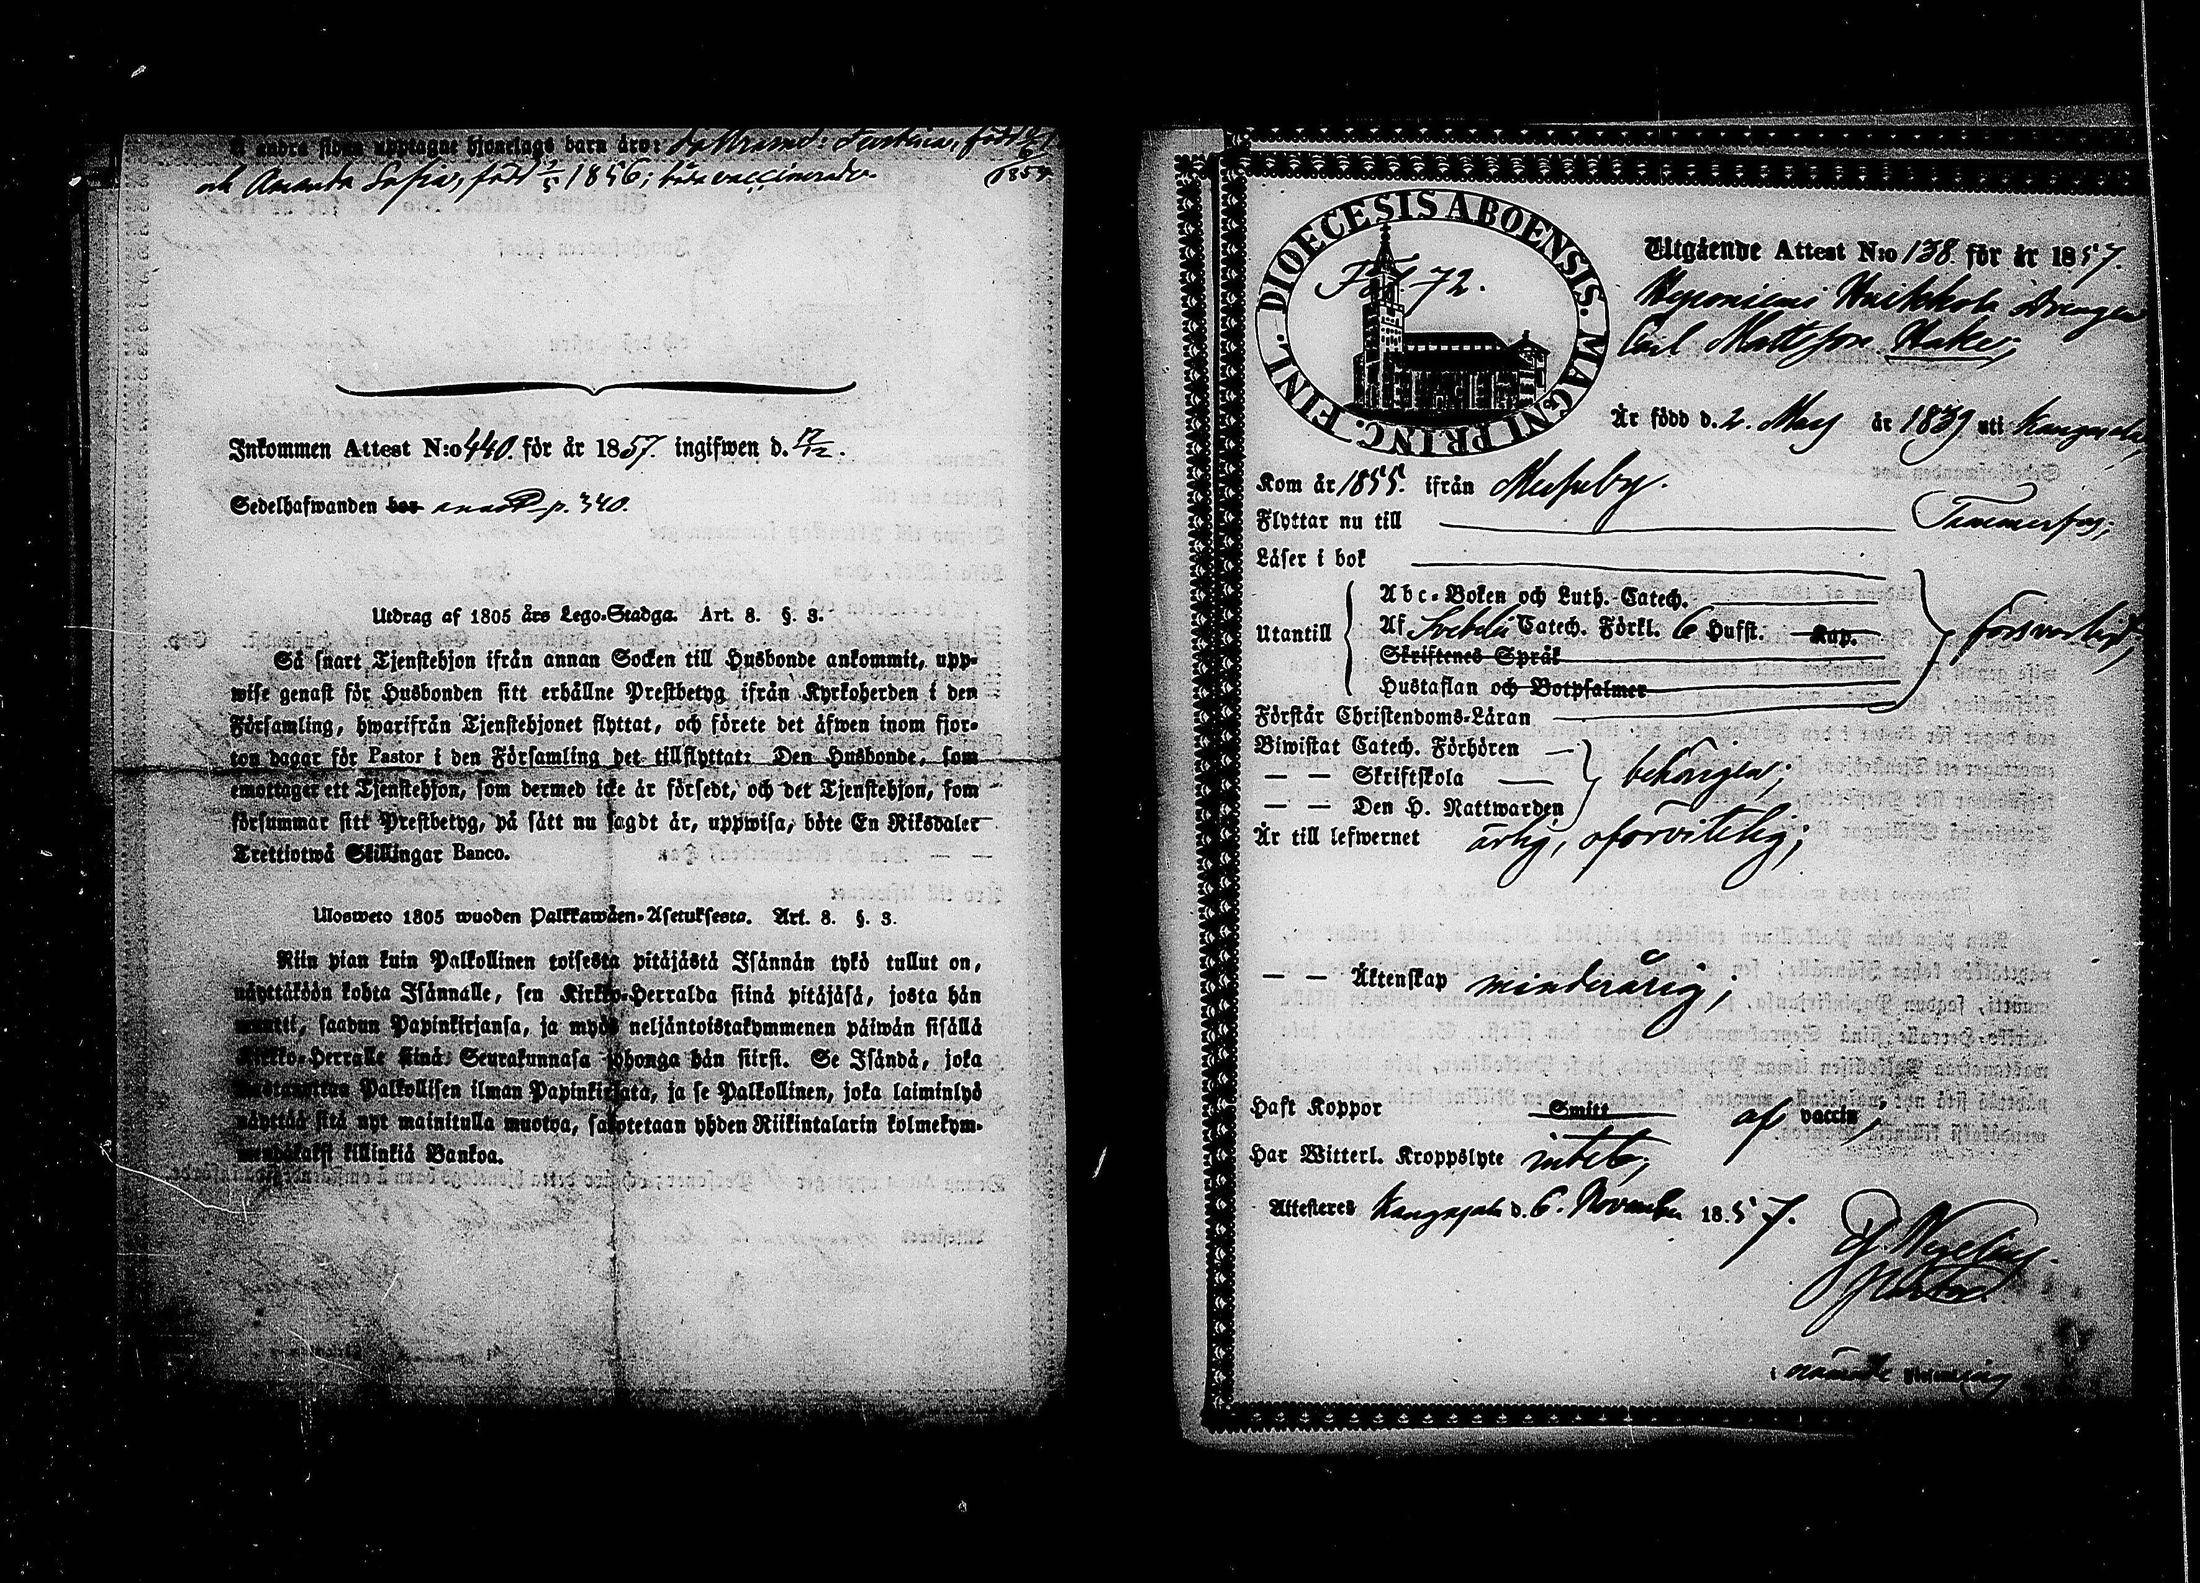 å andra sidan upptagne hjonelags barn äro:
och Amanda Sofia, född 2/5 1856; båda vaccinerade.
1854
Inkommen Attest N:o 440 för år 1857. ingifwen d. 17/12.
Sedelhafwanden bor p. 340.
Utdrag af 1805 års Lego-Stadga. Art. 8. §. 3.
Så snart Tjenstehjon ifrån annan Socken till Husbonde ankommit, upp-
wise genast för Husbonden sitt erhållne Prestbetyg ifrån Kyrkoherden i den
Församling, hwarifrån Tjenstehjonet flyttat, och förete det äfwen inom fjor-
ton dagar för Pastor i den Församling det tillflyttat: Den Husbonde, som
emottager ett Tjenstehjon, som dermed icke är försedt, och det Tjenstehjon, som
försummar sitt Prestbetyg, på sätt nu sagdt är, uppwisa, böte En Riksdaler
Trettiotwå Skillingar Banco.
Ulosweto 1805 wuoden Palkkawäen-Asetuksesta. Art. 8. §. 3.
Niin pian kuin Palkollinen toisesta pitäjästä Isännän tykö tullut on,
näyttäköön kohta Isännälle, sen Kirkko-Herralda siinä pitäjäsä, josta hän
muutti, saadun Papinkirjansa, ja myös neljäntoistakymmenen päiwän sisällä
Kirkko-Herralle siinä Seurakunnasa johonga hän siirsi. Se Isändä, joka
wastanottaa Palkollisen ilman Papinkirjata, ja se Palkollinen, joka laiminlyö
näyttää sitä nyt mainitulla muotoa, sakotetaan yhden Riikintalarin kolmekym-
mendäkaksi killinkiä Bankoa.
DIOECESIS ABOENSIS. MAGNI PRINC. FINL.
Fol. 72.
Utgående Attest N:o 138 för år 1857.
Heponiemi Huikkola drengen
Carl Mattsson Hake;
Är född d. 2. May år 1839 uti Kangasala,
Kom år 1855. ifrån Messuby.
Flyttar nu till Tammerfors;
Läser i bok
Abc-Boken och Luth. Catech.
Utantill Af Svebelii Catech. Förkl. 6 Hufst. Kap. försvarligt,
Skriftenes Språk
Hustaflan och Botpsalmer
Förstår Christendoms-Läran
Biwistat Catech. Förhören
— — Skriftskola behörigen;
— — Den H. Nattwarden
Är till lefwernet ärlig, oförvitelig;
— — Äktenskap minderårig;
Haft Koppor Smitt af vaccin;
Har Witterl. Kroppslyte intet;
Attesteres Kangasala d. 6. November 1857.